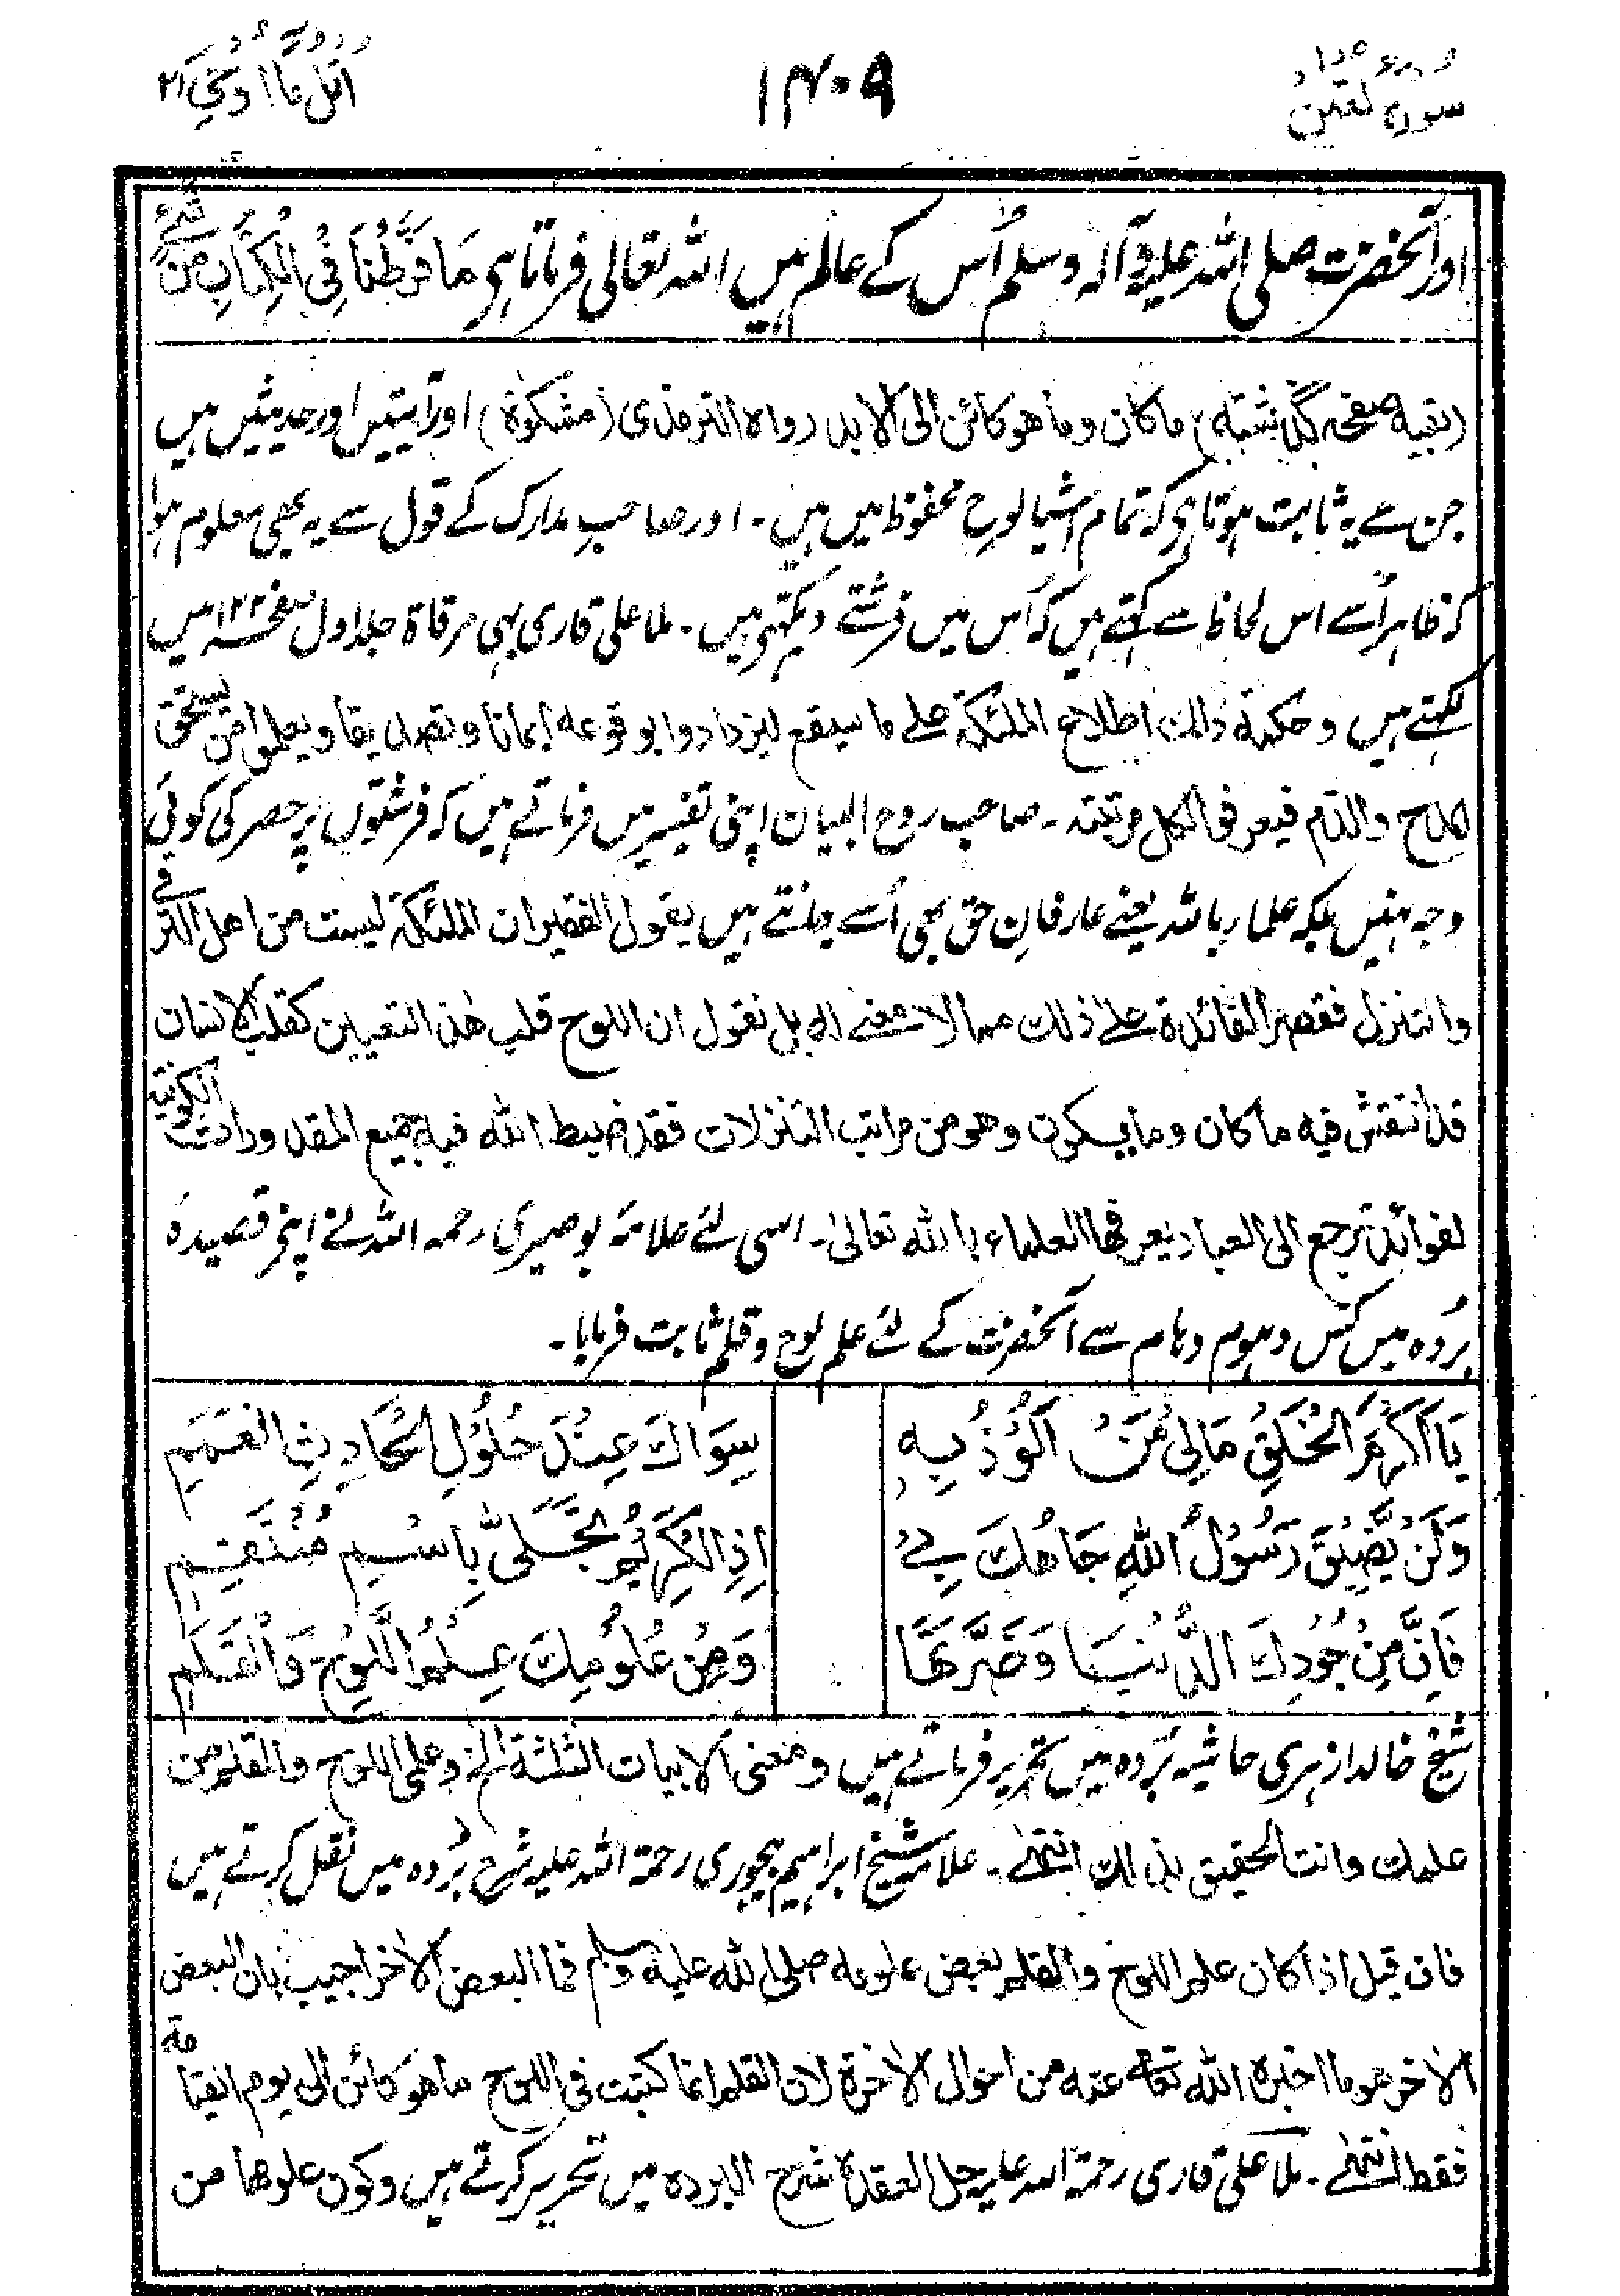 سورۃ لقمٰن
۱۴۰۹
اُتْلُ مَا اُوْحِیَ ۲۱
اور آنحضرت صلی اللہ علیہ وآلہ وسلم اُس کے عالم ہیں اللہ تعالی فرماتا ہی مَا فَرَّطْنَا فِی الْکِتَابِ مِنْ شَیْءٍ
(بقیہ صفحہ گذشتہ) ماکان وماھوکائن الی الابد رواہ الترمذی (مشکوۃ) اور آیتیں اور حدیثیں ہیں
جن سے یہ ثابت ہوتا ہی کہ تمام اشیا لوحِ محفوظ میں ہیں۔ اور صاحبِ مدارک کے قول سے یہ بھی معلوم ہوا
کہ ظاہر اُسے اس لحاظ سے کہتے ہیں کہ اُس میں فرشتے دیکھتے ہیں۔ ملا علی قاری بھی مرقاۃ جلد اول صفحہ ۱۲۲ میں
لکھتے ہیں وحکمۃ ذلک اطلاع الملئکۃ علے ما سیقع لیزدادوا بوقوعہ ایمانا وتصدیقا ویعلموا من یستحق
المدح والذم فیعرف لکل مرتبتہ۔ صاحب روح البیان اپنی تفسیر میں فرماتے ہیں کہ فرشتوں پر حصر کی کوئی
وجہ نہیں بلکہ علمار باللہ یعنے عارفانِ حق بھی اُسے جانتے ہیں یقول الفقیران الملئکۃ لیست من اھل الترقی
والتنزل فقصر الفائدۃ علےٰ ذلک مما لا معنے لہ بل نقول ان اللوح قلب ھذا التعیین کقلب الانسان
قد انتقش فیہ ماکان وما یکون وھو من مراتب التنزلات فقد ضبط اللہ فیہ جمیع المقدورات الکونیۃ
لفوائد ترجع الی العباد یعرفھا العلماء باللہ تعالیٰ۔ اسی لئے علامہ بوصیری رحمہ اللہ نے اپنے قصیدہ
بُردہ میں کس دہوم دہام سے آنحضرت کے لئے علم لوح وقلم ثابت فرمایا۔
یَا اَکْرَمَ الْخَلْقِ مَالِیْ مَنْ اَلُوْذُ بِہٖ سِوَاکَ عِنْدَ حُلُوْلِ الْحَادِثِ الْعَمَمِ
وَلَنْ یَّضِیْقَ رَسُوْلَ اللہِ جَاھُکَ بِیْ اِذِ الْکَرِیْمُ تَجَلّٰی بِاسْمِ مُنْتَقِمِ
فَاِنَّ مِنْ جُوْدِکَ الدُّنْیَا وَضَرَّتَھَا وَمِنْ عُلُوْمِکَ عِلْمُ اللَّوْحِ وَالْقَلَمِ
شیخ خالد ازہری حاشیہ بُردہ میں تحریر فرماتے ہیں ومعنی الابیات الثلثۃ الخ وعلم اللوح والقلم من
علمک وانت الحقیق بذلک انتہٰے۔ علامہ شیخ ابراہیم بیجوری رحمۃ اللہ علیہ شرح بُردہ میں نقل کرتے ہیں
فان قیل اذا کان علم اللوح والقلم بعض علومہ صلی اللہ علیہ وسلم فما البعض الاٰخر اجیب بان البعض
الاٰخر ھو ما اخبرہ اللہ تعالٰی عنہ من احوال الاٰخرۃ لان القلم انما کتب فی اللوح ما ھو کائن الی یوم القیامۃ
فقط انتہٰے۔ ملا علی قاری رحمۃ اللہ علیہ حل العقدۃ شرح البردہ میں تحریر کرتے ہیں وکون علومھا من